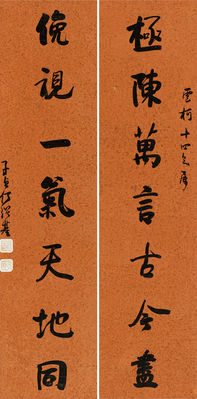 雲柯十四兄屬
極陳萬言古今盡
俛視一氣天地同
子貞何紹基